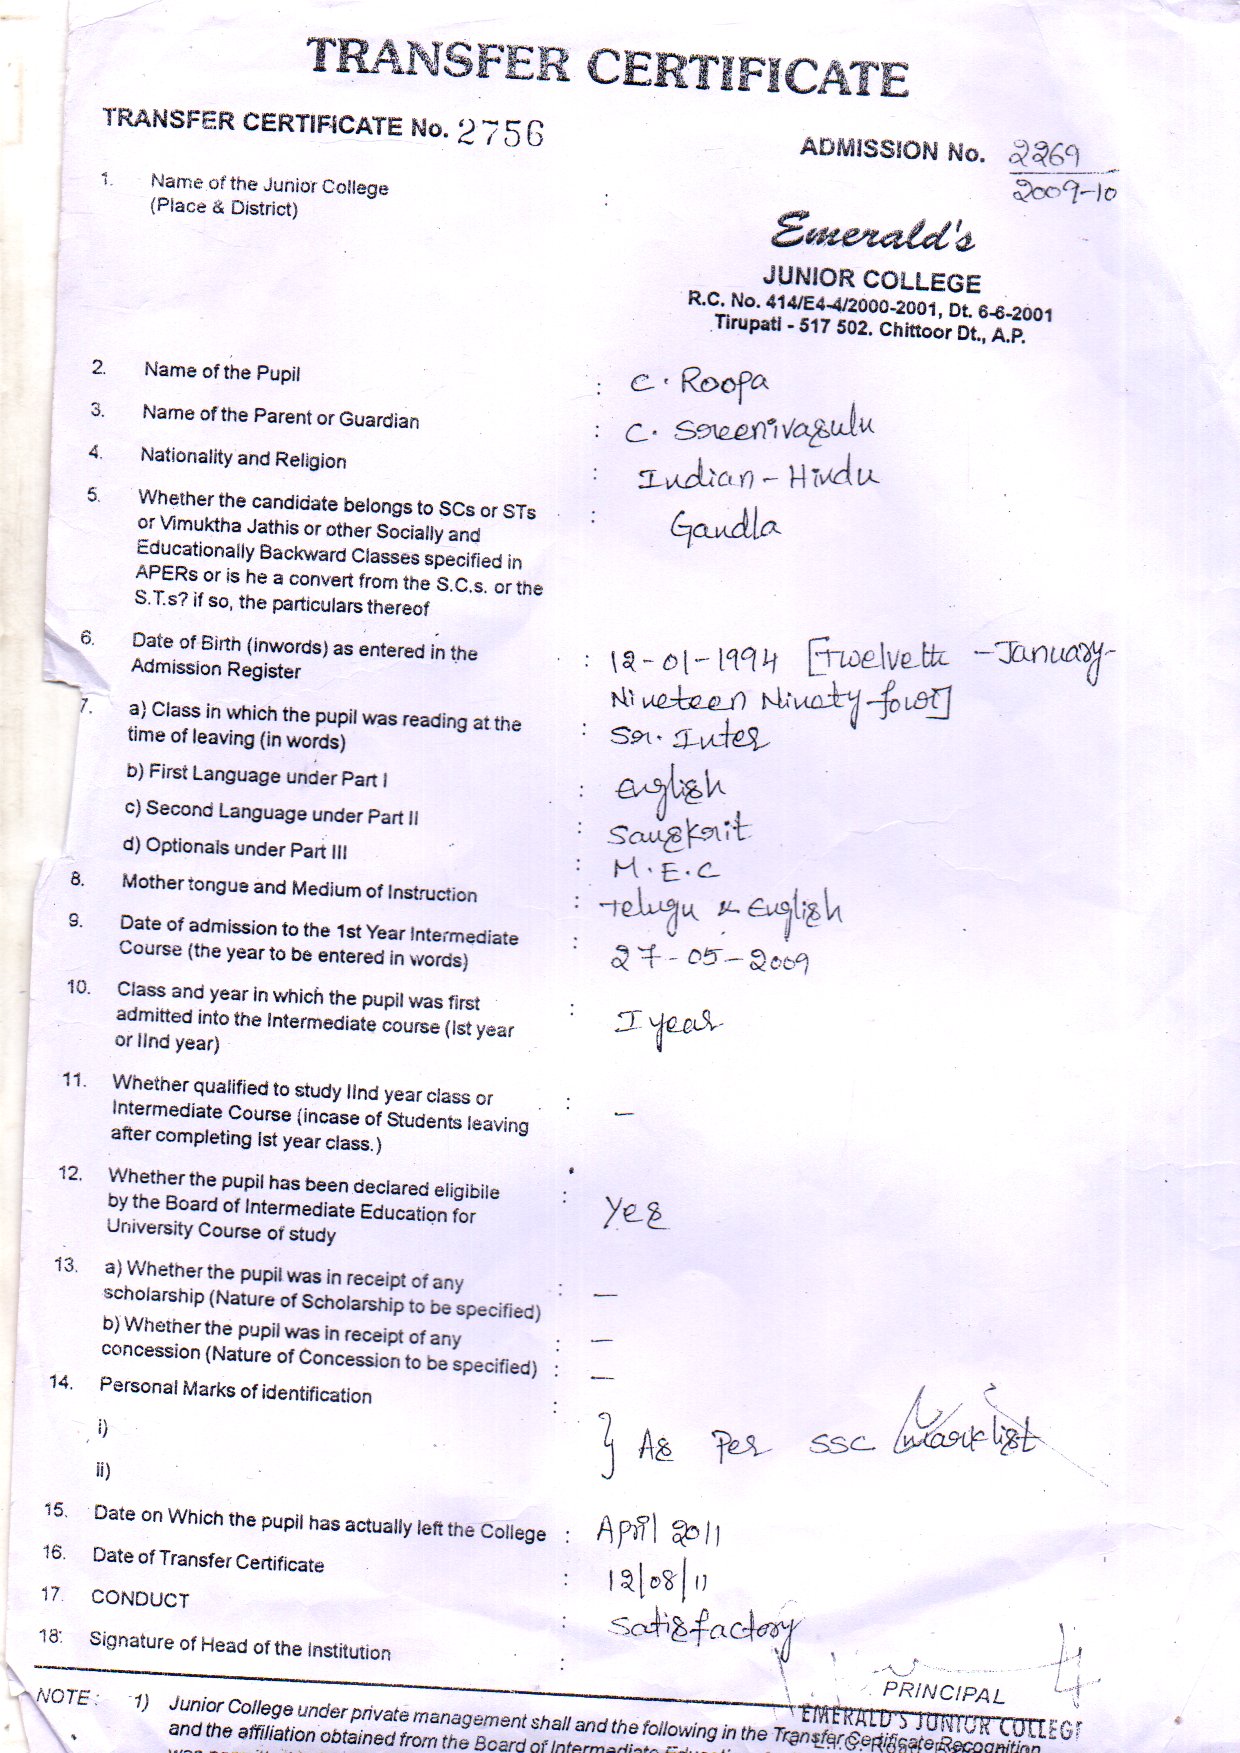 TRANSFER CERTIFICATE
TRANSFER CERTIFICATE No. 2756
ADMISSION No. 2269
2009-10
1. Name of the Junior College :
(Place & District)
Emerald's
JUNIOR COLLEGE
R.C. No. 414/E4-4/2000-2001, Dt. 6-6-2001
Tirupati - 517 502. Chittoor Dt., A.P.
2. Name of the Pupil : C. Roopa
3. Name of the Parent or Guardian : C. Sreenivasulu
4. Nationality and Religion : Indian - Hindu
5. Whether the candidate belongs to SCs or STs : Gandla
or Vimuktha Jathis or other Socially and
Educationally Backward Classes specified in
APERs or is he a convert from the S.C.s. or the
S.T.s? if so, the particulars thereof
6. Date of Birth (inwords) as entered in the : 12-01-1994 [Twelveth - January-
Admission Register Nineteen Ninety-four]
7. a) Class in which the pupil was reading at the : Sr. Inter
time of leaving (in words)
b) First Language under Part I : English
c) Second Language under Part II : Sanskrit
d) Optionals under Part III : M.E.C
8. Mother tongue and Medium of Instruction : Telugu & English
9. Date of admission to the 1st Year Intermediate : 27-05-2009
Course (the year to be entered in words)
10. Class and year in which the pupil was first : I year
admitted into the Intermediate course (Ist year
or IInd year)
11. Whether qualified to study IInd year class or : —
Intermediate Course (incase of Students leaving
after completing Ist year class.)
12. Whether the pupil has been declared eligibile : Yes
by the Board of Intermediate Education for
University Course of study
13. a) Whether the pupil was in receipt of any : —
scholarship (Nature of Scholarship to be specified)
b) Whether the pupil was in receipt of any : —
concession (Nature of Concession to be specified) : —
14. Personal Marks of identification :
i) } As Per SSC marklist
ii)
15. Date on Which the pupil has actually left the College : April 2011
16. Date of Transfer Certificate : 12/08/11
17. CONDUCT : Satisfactory
18. Signature of Head of the Institution :
PRINCIPAL
EMERALD'S JUNIOR COLLEGE
NOTE : 1) Junior College under private management shall and the following in the Transfer Certificate Recognition
and the affiliation obtained from the Board of Intermediate